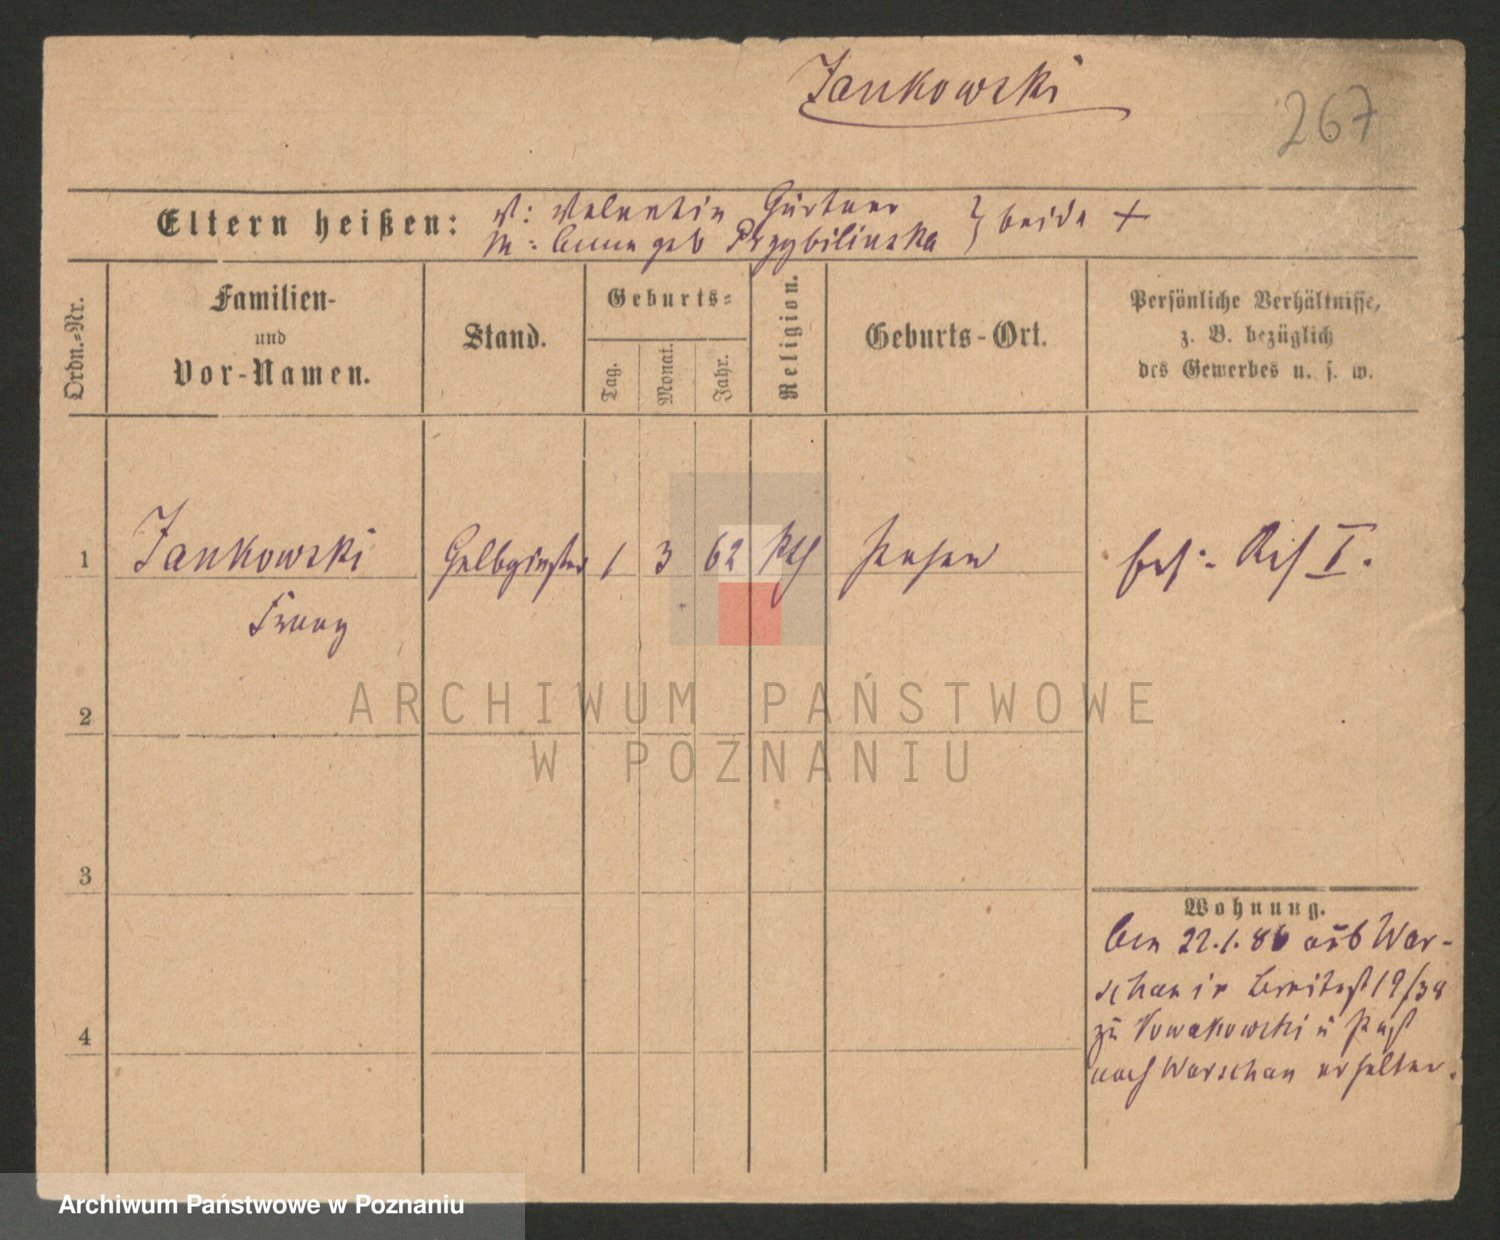 Jankowski
267
Eltern heißen: V: Valentin Gärtner } beide +
M: Anna geb Przybilinska
Ordn.-Nr.
Familien-
und
Vor-Namen.
Stand.
Geburts-
Tag.
Monat.
Jahr.
Religion.
Geburts-Ort.
Persönliche Verhältnisse,
z. B. bezüglich
des Gewerbes u. s. w.
1 Jankowski Gelbgießer 1 3 62 kth Posen Ers: Res I.
Franz
2
3
4
Wohnung.
Am 22.1.86 aus War-
schau in Breitestr 19/38
zu Nowakowski u Paß
nach Warschau erhalten.
ARCHIWUM PAŃSTWOWE
W POZNANIU
Archiwum Państwowe w Poznaniu